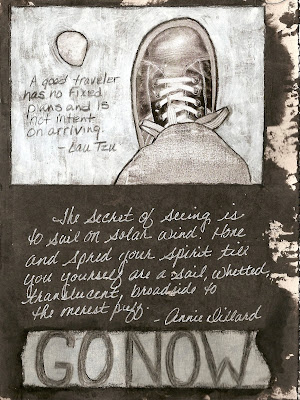 A good traveler
has no fixed
plans and is
not intent
on arriving.
- Lau Tzu
The secret of seeing is
to sail on solar wind. Hone
and spred your spirit till
you yourself are a sail, whetted,
translucent, broadside to
the merest puff.
- Annie Dillard
GO NOW